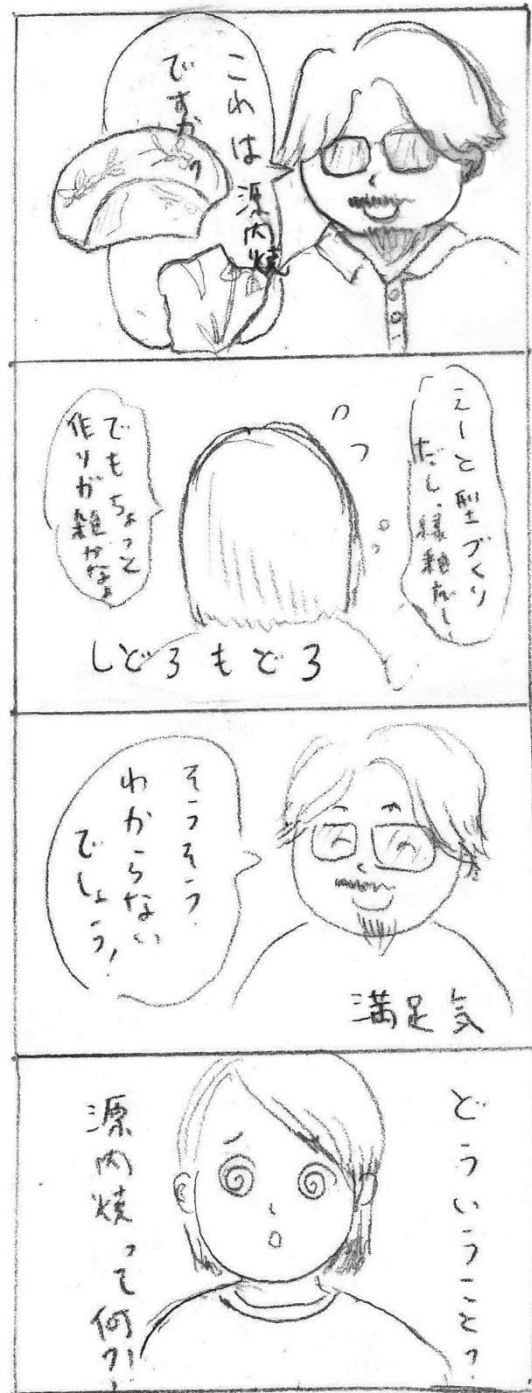 これは源内焼
ですか？
えーと型づくり
だし、緑釉だし
でもちょっと
作りが雑かなぁ
しどろもどろ
そうそう
わからない
でしょう！
満足気
どういうこと？
源内焼って何？！